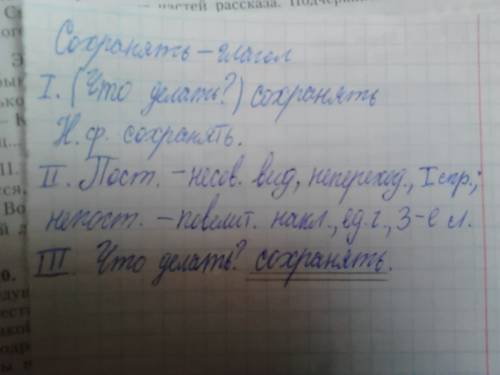 частей рассказа. Подчер
Сохранять – глагол
I. (Что делать?) сохранять
Н.ф. сохранять.
II. Пост. – несов. вид, непереход., I спр.;
непост. – повелит. накл., ед.ч., 3-е л.
III Что делать? сохранять.